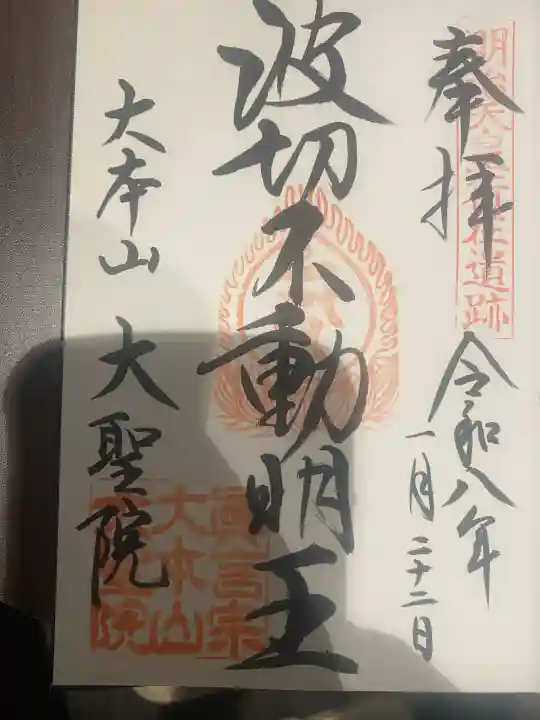 奉拝
明治天皇行在遺跡
令和八年
一月二十二日
波切不動明王
大本山 大聖院
真言宗
大本山
大聖院